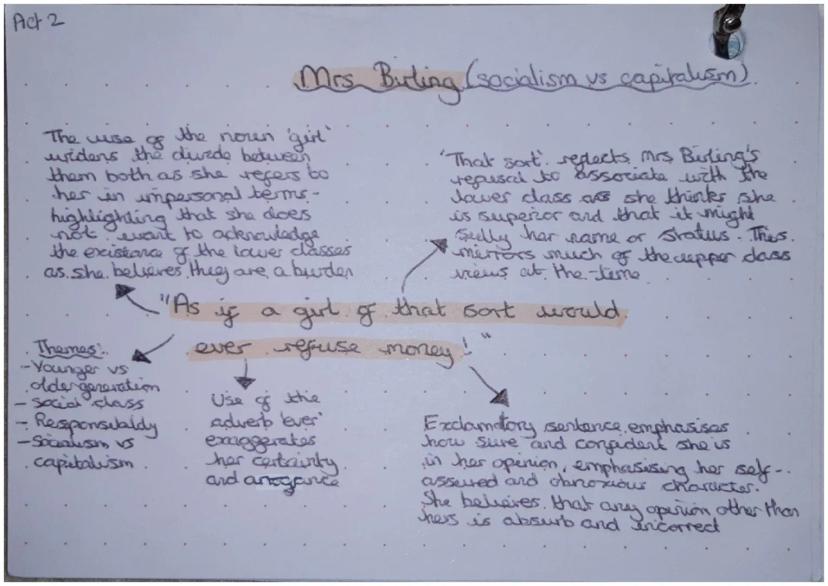 Act 2
Mrs Birling (socialism vs capitalism)
The use of the noun 'girl'
widens the divide between
them both as she refers to
her in impersonal terms -
highlighting that she does
not want to acknowledge
the existance of the lower classes
as she believes they are a burden
'That sort' reflects Mrs Birling's
refusal to associate with the
lower class as she thinks she
is superior and that it might
sully her name or status. This
mirrors much of the upper class
views at the time
"As if a girl of that sort would
ever refuse money!"
Themes:
- Younger vs
older generation
- Social class
- Responsibility
- Socialism vs
capitalism
Use of the
adverb 'ever'
exaggerates
her certainty
and arrogance
Exclamatory sentence emphasises
how sure and confident she is
in her opinion, emphasising her self-
assured and obnoxious character.
She believes that any opinion other than
hers is absurb and incorrect